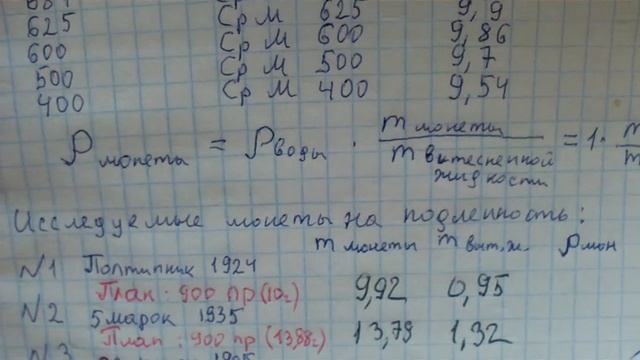 625 Ср М 625 9,9
600 Ср М 600 9,86
500 Ср М 500 9,7
400 Ср М 400 9,54
ρ монеты = ρ воды · m монеты / m вытесненной жидкости = 1 · m / m
Исследуемые монеты на подленность:
m монеты m выт.ж. ρ мон
N1 Полтинник 1924
План: 900 пр (10г) 9,92 0,95
N2 5 марок 1935
План: 900 пр (13,88г) 13,79 1,32
N3 1905